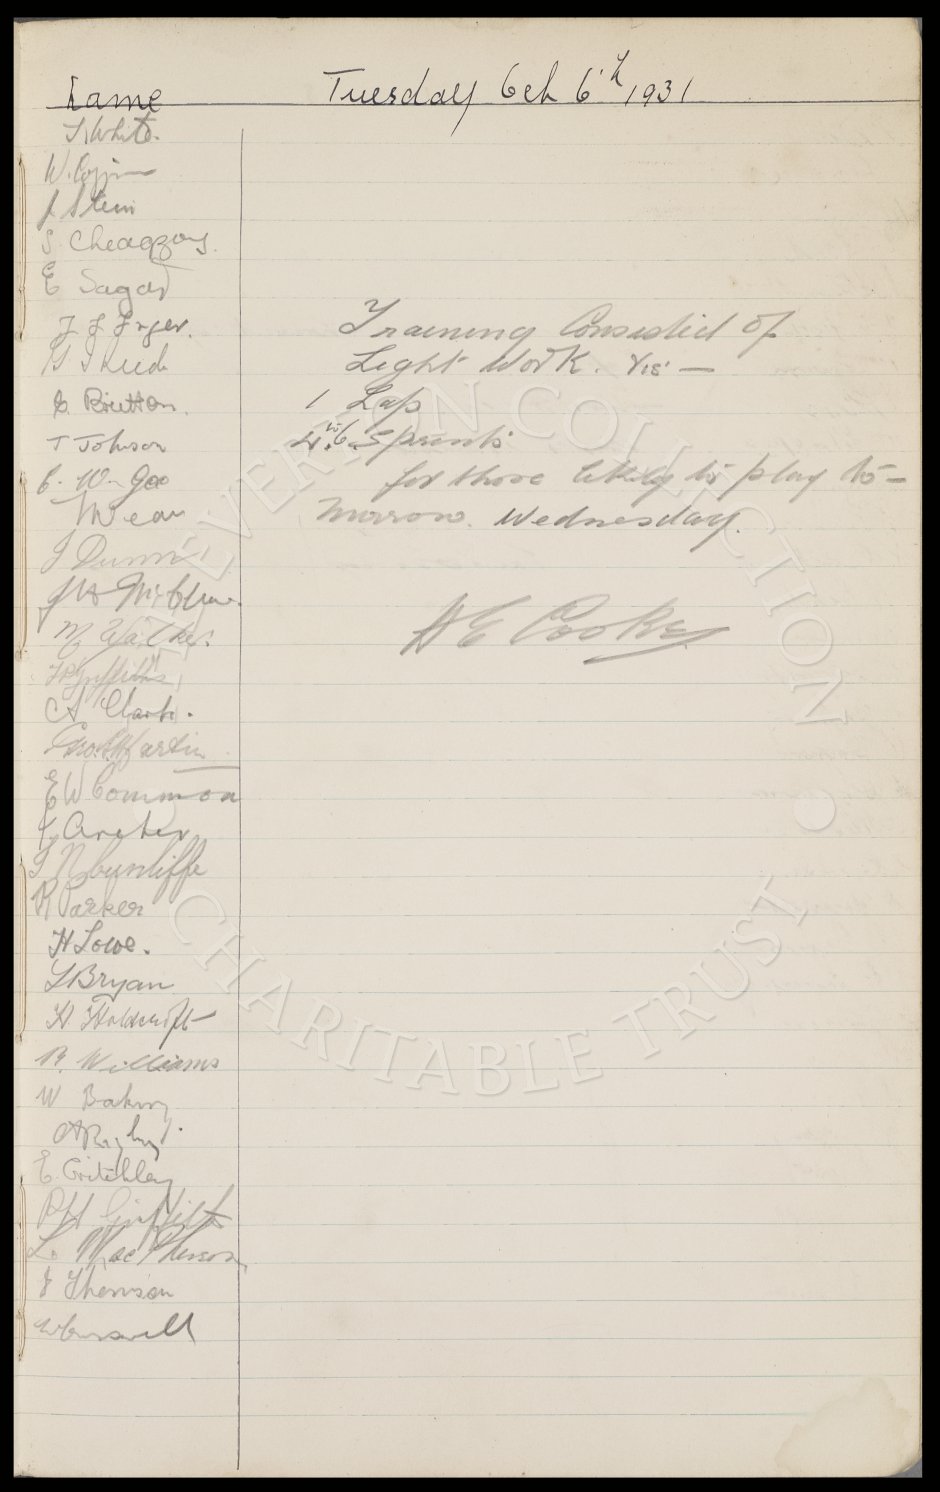 Name
Tuesday Oct 6th 1931
T. White.
W. Coggins
J Stein
S. Cheadgzoy.
E Sagar
J J Fryer.
G T Rudd
C. Britton.
T Johnson
C. W. Gee
W Dean
J Dunn
J H McClure.
M Walker.
T P Griffiths
C A Clark.
Geo. S. Martin
E W Common
J Archer
J N Cunliffe
R Parker
H Lowe.
L Bryan
H Holdcroft
B. Williams
W Bakery
A Rigby.
E. Critchley
P H Griffiths
L. MacPherson
J Thomson
W Cresswell
Training Consisted of
Light Work. Vis: —
1 Lap
4 to 6 Sprints
for those likely to play to-
morrow. Wednesday.
H E Cooke
EVERTON COLLECTION
CHARITABLE TRUST